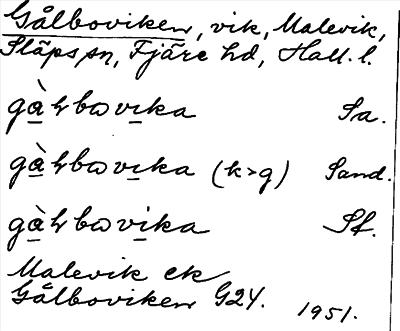 Gålboviken, vik, Malevik,
Släps sn, Fjäre hd, Hall. l.
gàɫbovika Sa.
gàɫbovika (k>g) Sand.
gàɫbovika Sf.
Malevik ek
Gålboviken G24. 1951.